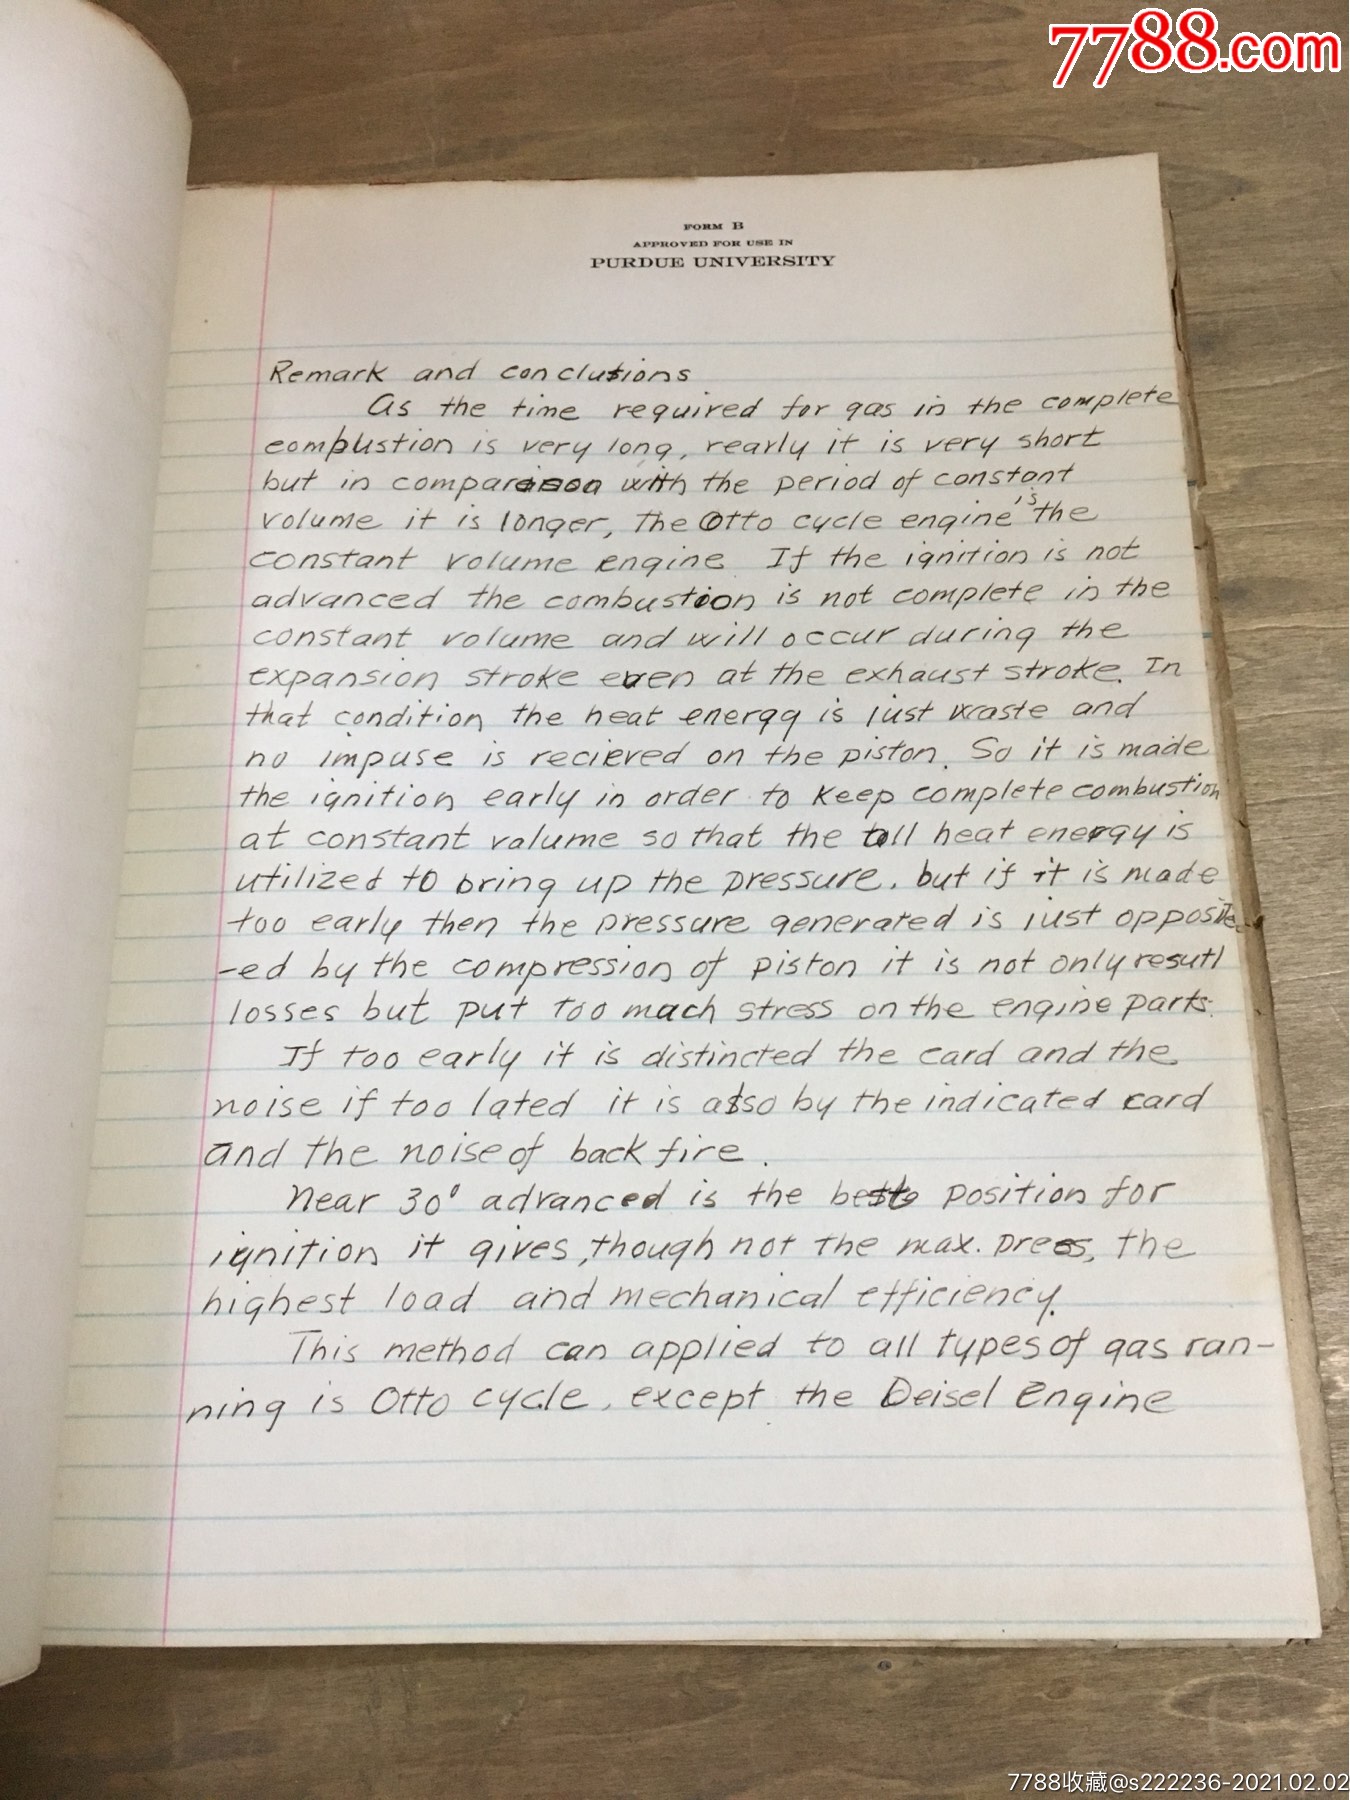 7788.com
FORM B
APPROVED FOR USE IN
PURDUE UNIVERSITY
Remark and conclusions
As the time required for gas in the complete
combustion is very long, rearly it is very short
but in comparison with the period of constant
volume it is longer, The Otto cycle engine is the
constant volume engine. If the ignition is not
advanced the combustion is not complete in the
constant volume and will occur during the
expansion stroke even at the exhaust stroke. In
that condition the heat energy is just waste and
no impuse is recieved on the piston. So it is made
the ignition early in order to keep complete combustion
at constant volume so that the all heat energy is
utilized to bring up the pressure. but if it is made
too early then the pressure generated is just opposite
-ed by the compression of piston it is not only resutl
losses but put too mach stress on the engine parts.
If too early it is distincted the card and the
noise if too lated it is also by the indicated card
and the noise of back fire.
Near 30° advanced is the best position for
ignition it gives, though not the max. press, the
highest load and mechanical efficiency.
This method can applied to all types of gas ran-
ning is Otto cycle, except the Deisel Engine
7788收藏@s222236-2021.02.02